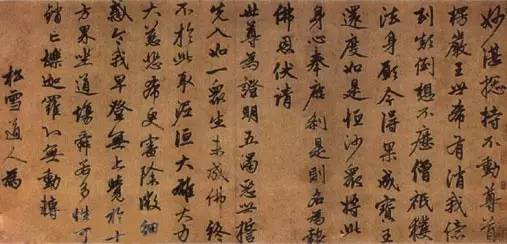 妙湛揔持不動尊首
楞嚴王世希有消我億
劫顛倒想不歷僧祇獲
法身願今得果成寶王
還度如是恒沙衆將此
身心奉塵刹是則名為報
佛恩伏請
世尊為證明五濁惡世誓
先入如一衆生未成佛終
不於此取泥洹大雄大力
大慈悲希更審除微細
惑令我早登無上覺於十
方界坐道場舜若多性可
銷亡爍迦羅心無動轉
松雪道人為